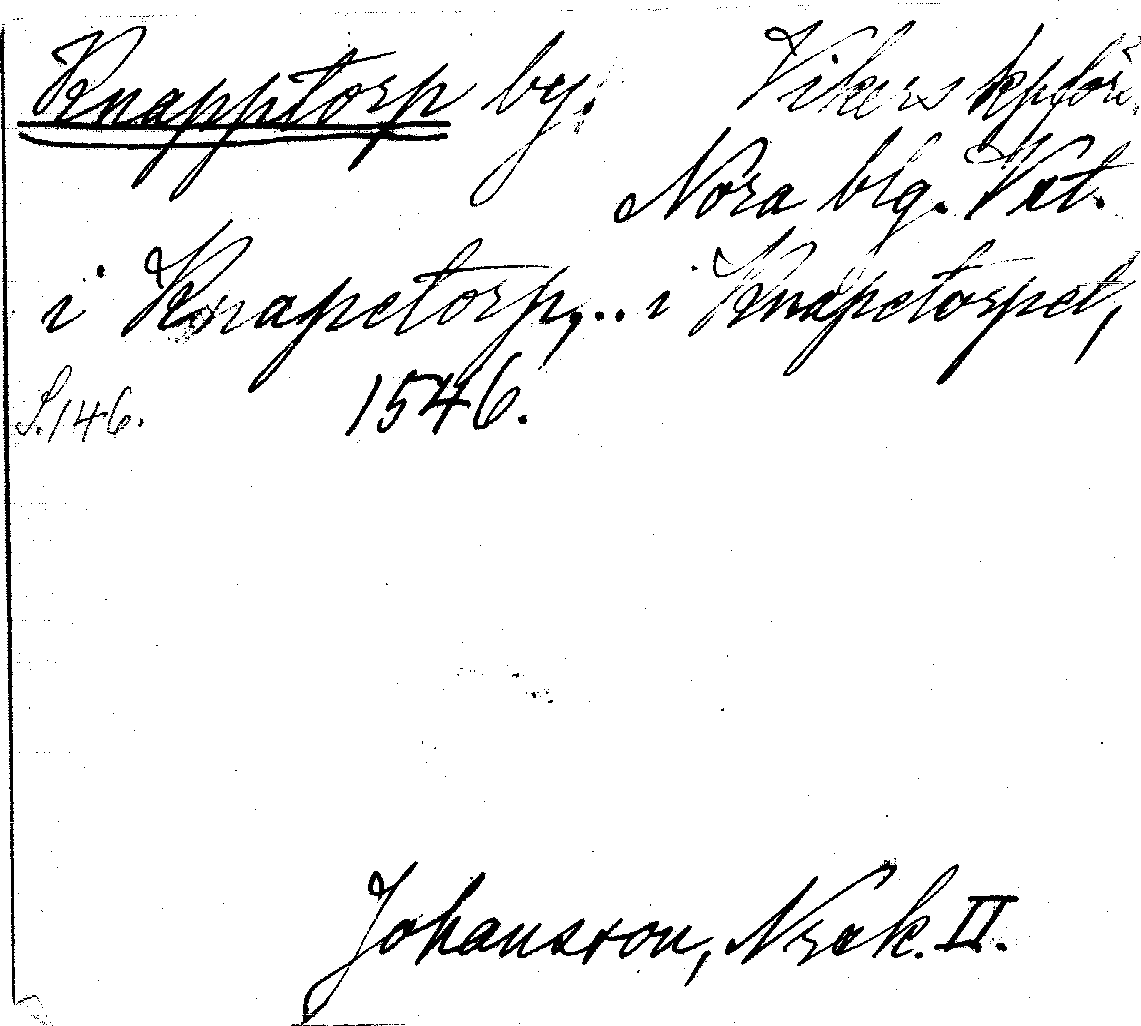 Knapptorp by. Vikers kplför.
Nora blg. Vrt.
i Knapetorp,.. i Knapetorpet,
S.146. 1546.
Johansson, Nrck. II.